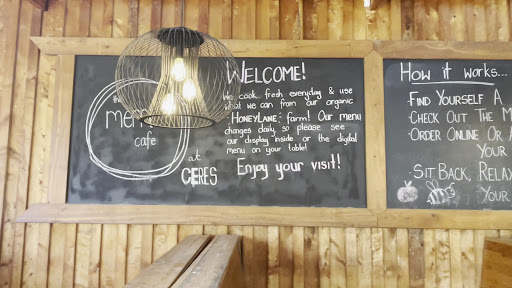 the
mer
cafe
at
CERES
WELCOME!
We cook fresh everyday & use
what we can from our organic
HONEYLANE farm! Our menu
changes daily so please see
our display inside or the digital
menu on your table!
Enjoy your visit!
HOW it works...
-FIND YOURSELF A
-CHECK OUT THE M
-ORDER ONLINE OR A
YOUR
-SIT BACK, RELAX
YOUR